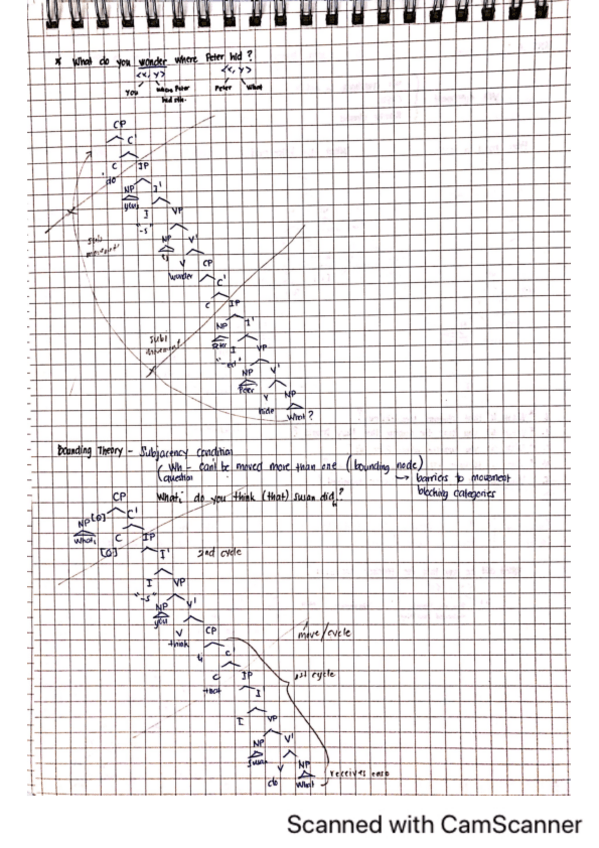 * What do you wonder where Peter hid ?
<x, y> <x, y>
You where Peter Peter What
hid
CP
C'
C IP
do
NP I'
you I VP
"-s"
NP V'
V CP
wonder C'
C IP
NP I'
Peter I VP
"-ed"
NP V'
Peer V NP
hide What ?
subj
movement
Bounding Theory - Subjacency condition
( Wh - can't be moved more than one (bounding node)
question → barriers to movement
blocking categories
What, do you think (that) susan did ?
CP
NP [Q] C'
What, C IP
[Q] I' 2nd cycle
I VP
"-s"
NP V'
you V CP move/cycle
think C'
C IP 1st cycle
that I'
I VP
NP V'
V NP receives case
do What
Scanned with CamScanner